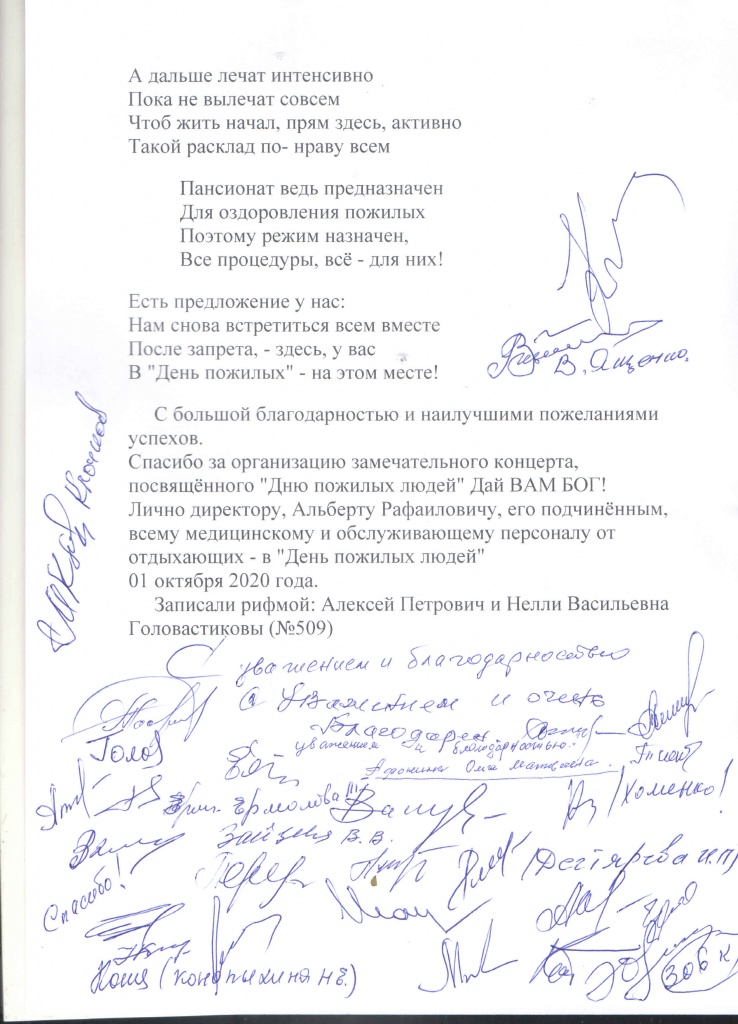 А дальше лечат интенсивно
Пока не вылечат совсем
Чтоб жить начал, прям здесь, активно
Такой расклад по- нраву всем
Пансионат ведь предназначен
Для оздоровления пожилых
Поэтому режим назначен,
Все процедуры, всё - для них!
Есть предложение у нас:
Нам снова встретиться всем вместе
После запрета, - здесь, у вас
В "День пожилых" - на этом месте!
В. Ященко.
С большой благодарностью и наилучшими пожеланиями
успехов.
Спасибо за организацию замечательного концерта,
посвящённого "Дню пожилых людей" Дай ВАМ БОГ!
Лично директору, Альберту Рафаиловичу, его подчинённым,
всему медицинскому и обслуживающему персоналу от
отдыхающих - в "День пожилых людей"
01 октября 2020 года.
Записали рифмой: Алексей Петрович и Нелли Васильевна
Головастиковы (№509)
С уважением и благодарностью
С уважением и очень
благодарен
уважением и благодарностью.
Голов
Афонина Ольга Матвеевна.
Ермолова
/Хоменко/
Зайцева В.В.
(Дегтярёва И.П)
Спасибо!
(Конопыхина Н.Е.)